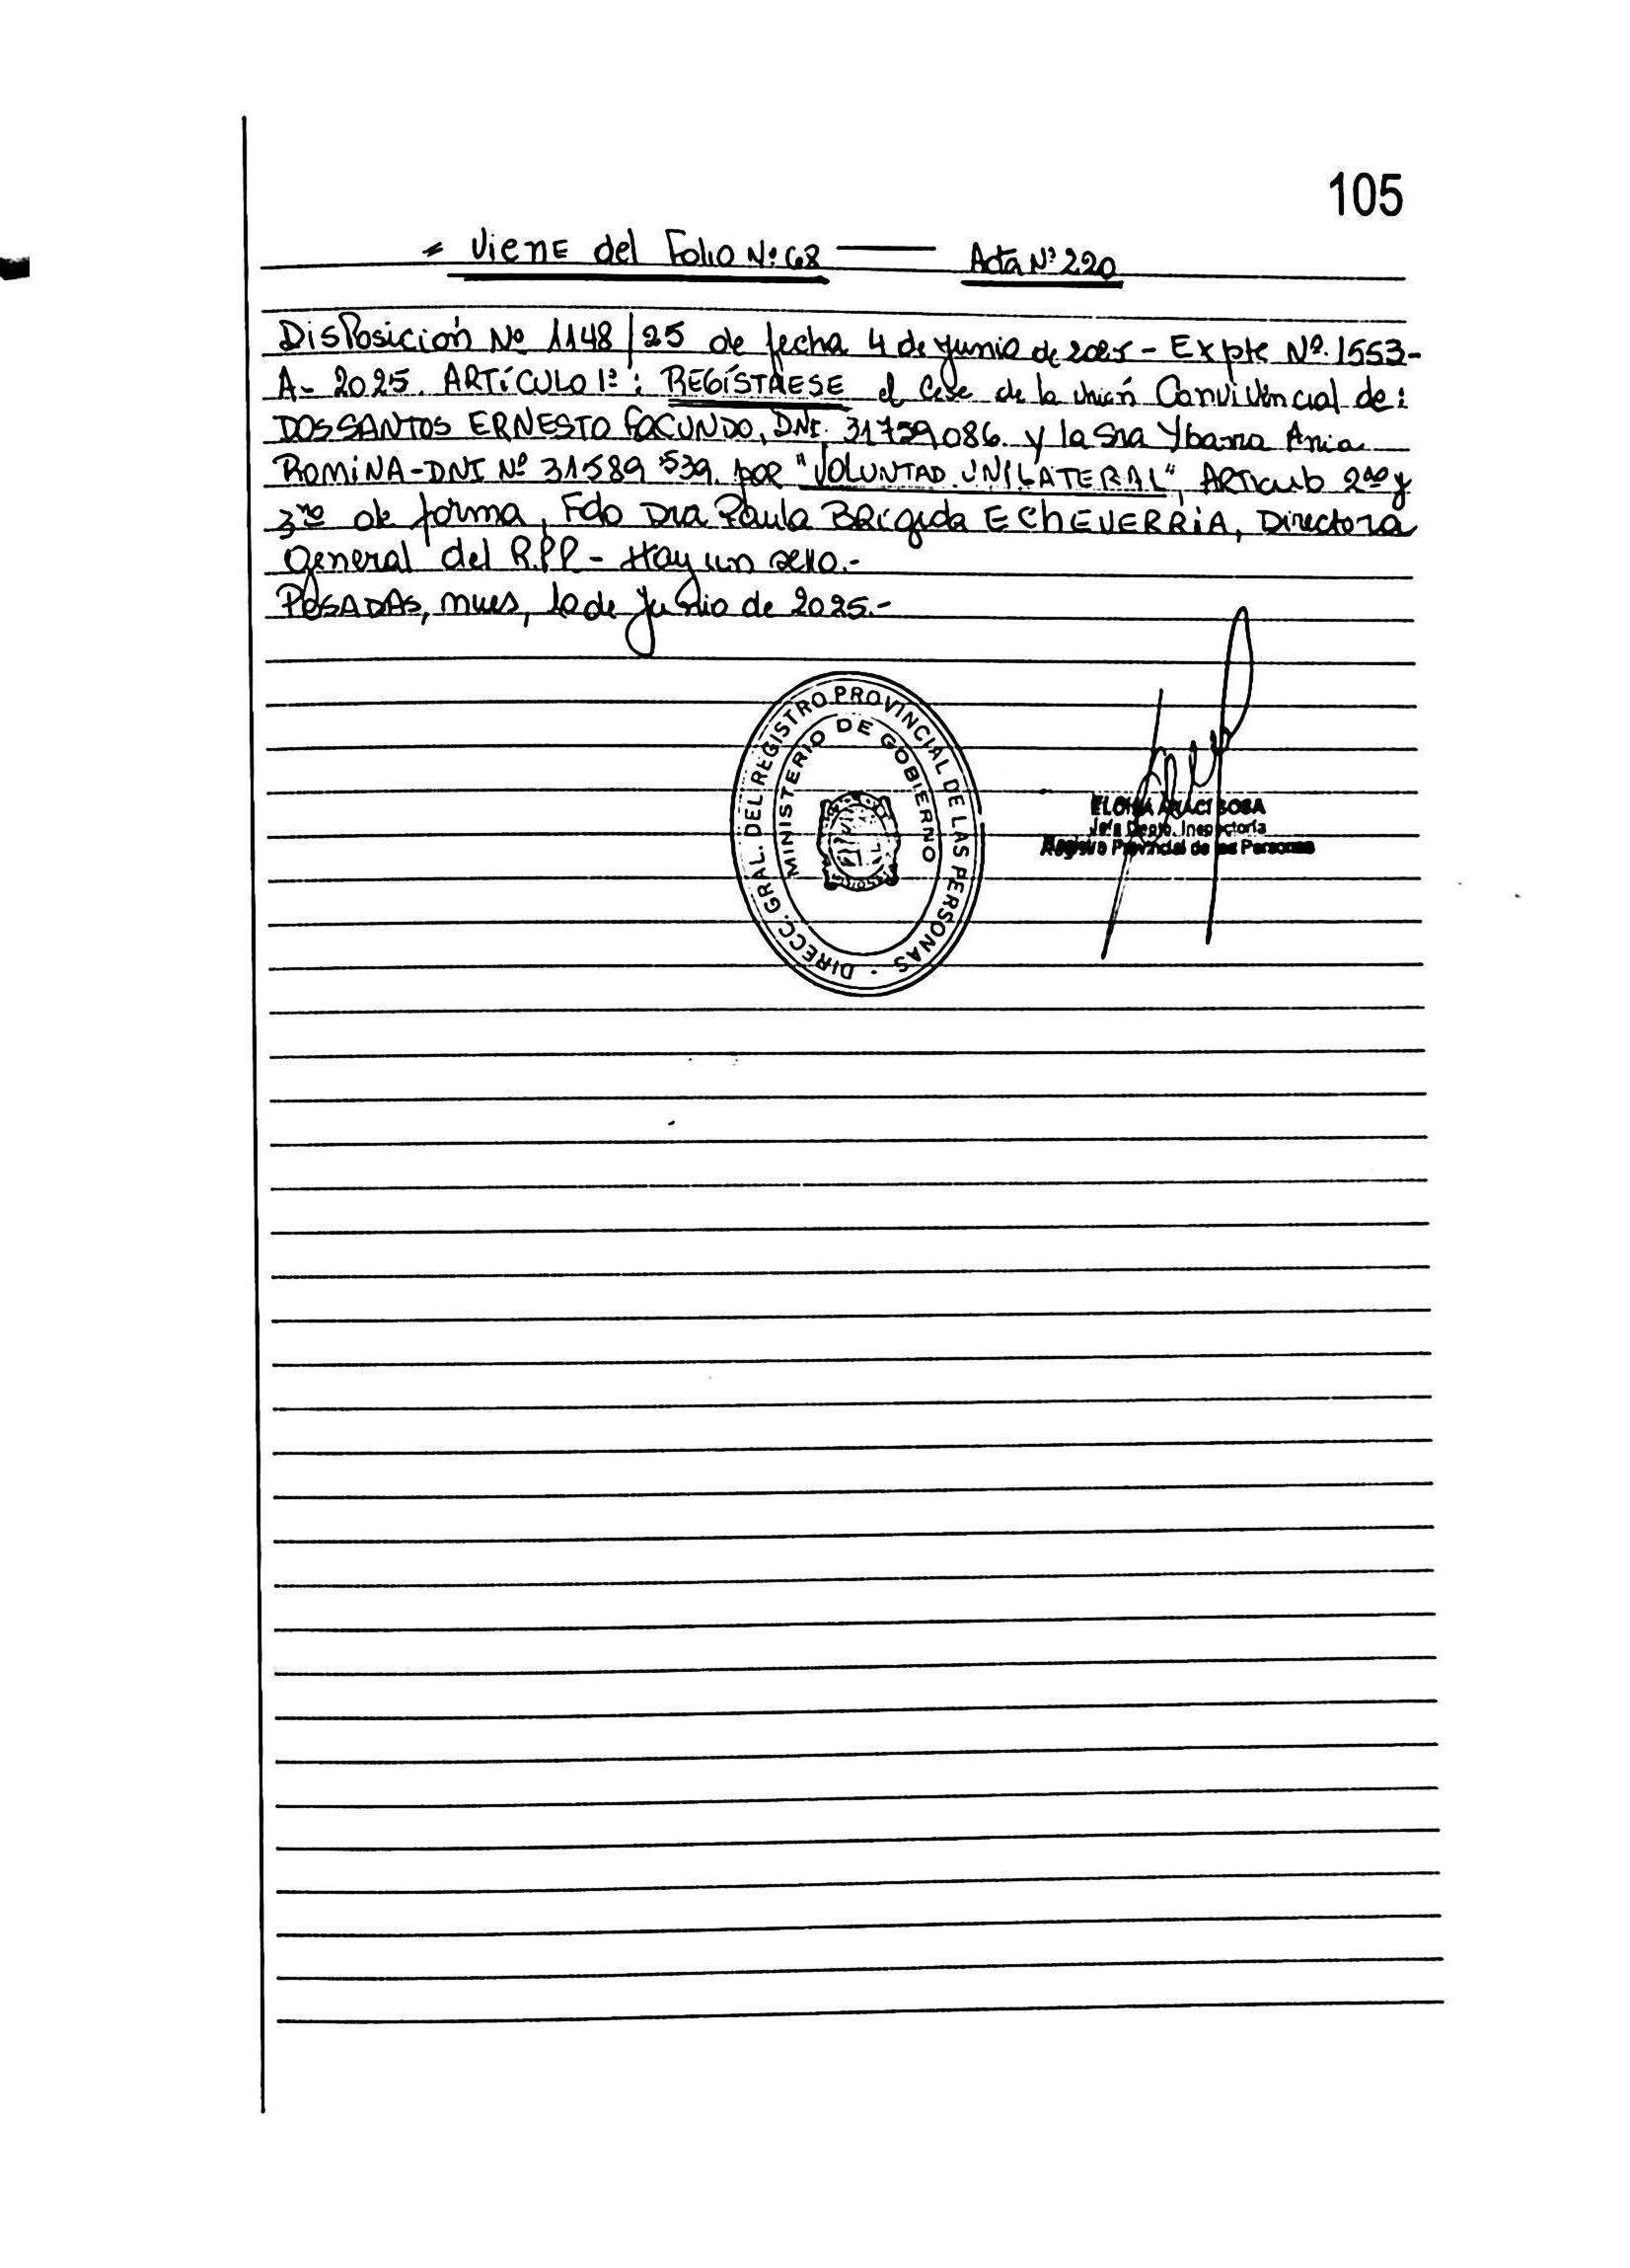 105
= Viene del Folio Nº 68 —— Acta Nº 220
Disposición Nº 1148/25 de fecha 4 de junio de 2025 - Expte Nº. 1553-
A- 2025. ARTÍCULO 1º: REGÍSTRESE el Cese de la unión Convivencial de:
DOS SANTOS ERNESTO FACUNDO, DNI. 31759086. y la Sra Ybarra Ania
ROMINA-DNI Nº 31.589.539. por "VOLUNTAD UNILATERAL", Articulo 2do y
3ro de forma, Fdo Dra Paula BRígida ECHEVERRIA, Directora
General del R.P.P - Hay un sello.-
POSADAS, Mnes, 10 de Junio de 2025.-
DIRECC. GRAL. DEL REGISTRO PROVINCIAL DE LAS PERSONAS
MINISTERIO DE GOBIERNO
ELOISA ARACI SOSA
Jefa Depto. Inspectoría
Registro Provincial de las Personas